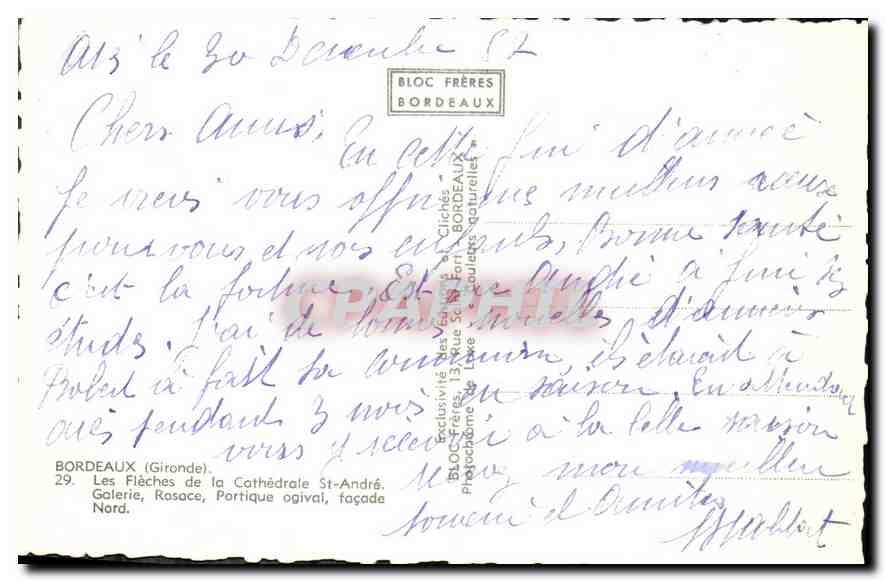 le 30 Decembre 57
BLOC FRÈRES
BORDEAUX
Chers Amis,
En cette fin d'année
Je viens vous offrir mes meilleurs vœux
pour vous et vos enfants, Bonne santé
c'est la fortune. Est ce que André à fini ses
études. J'ai de bonnes nouvelles d'
Robert à fait sa communion ils étaient à
pendant 3 mois en saison. En attendant
vous à la belle saison
mon meilleur
souvenir d'Amitiés
Exclusivité des Editions et Clichés
BLOC Frères, 13, Rue Ste Fort BORDEAUX
Photochrome de Luxe « couleurs naturelles »
CPAPHIL
BORDEAUX (Gironde).
29. Les Flèches de la Cathédrale St-André.
Galerie, Rosace, Portique ogival, façade
Nord.